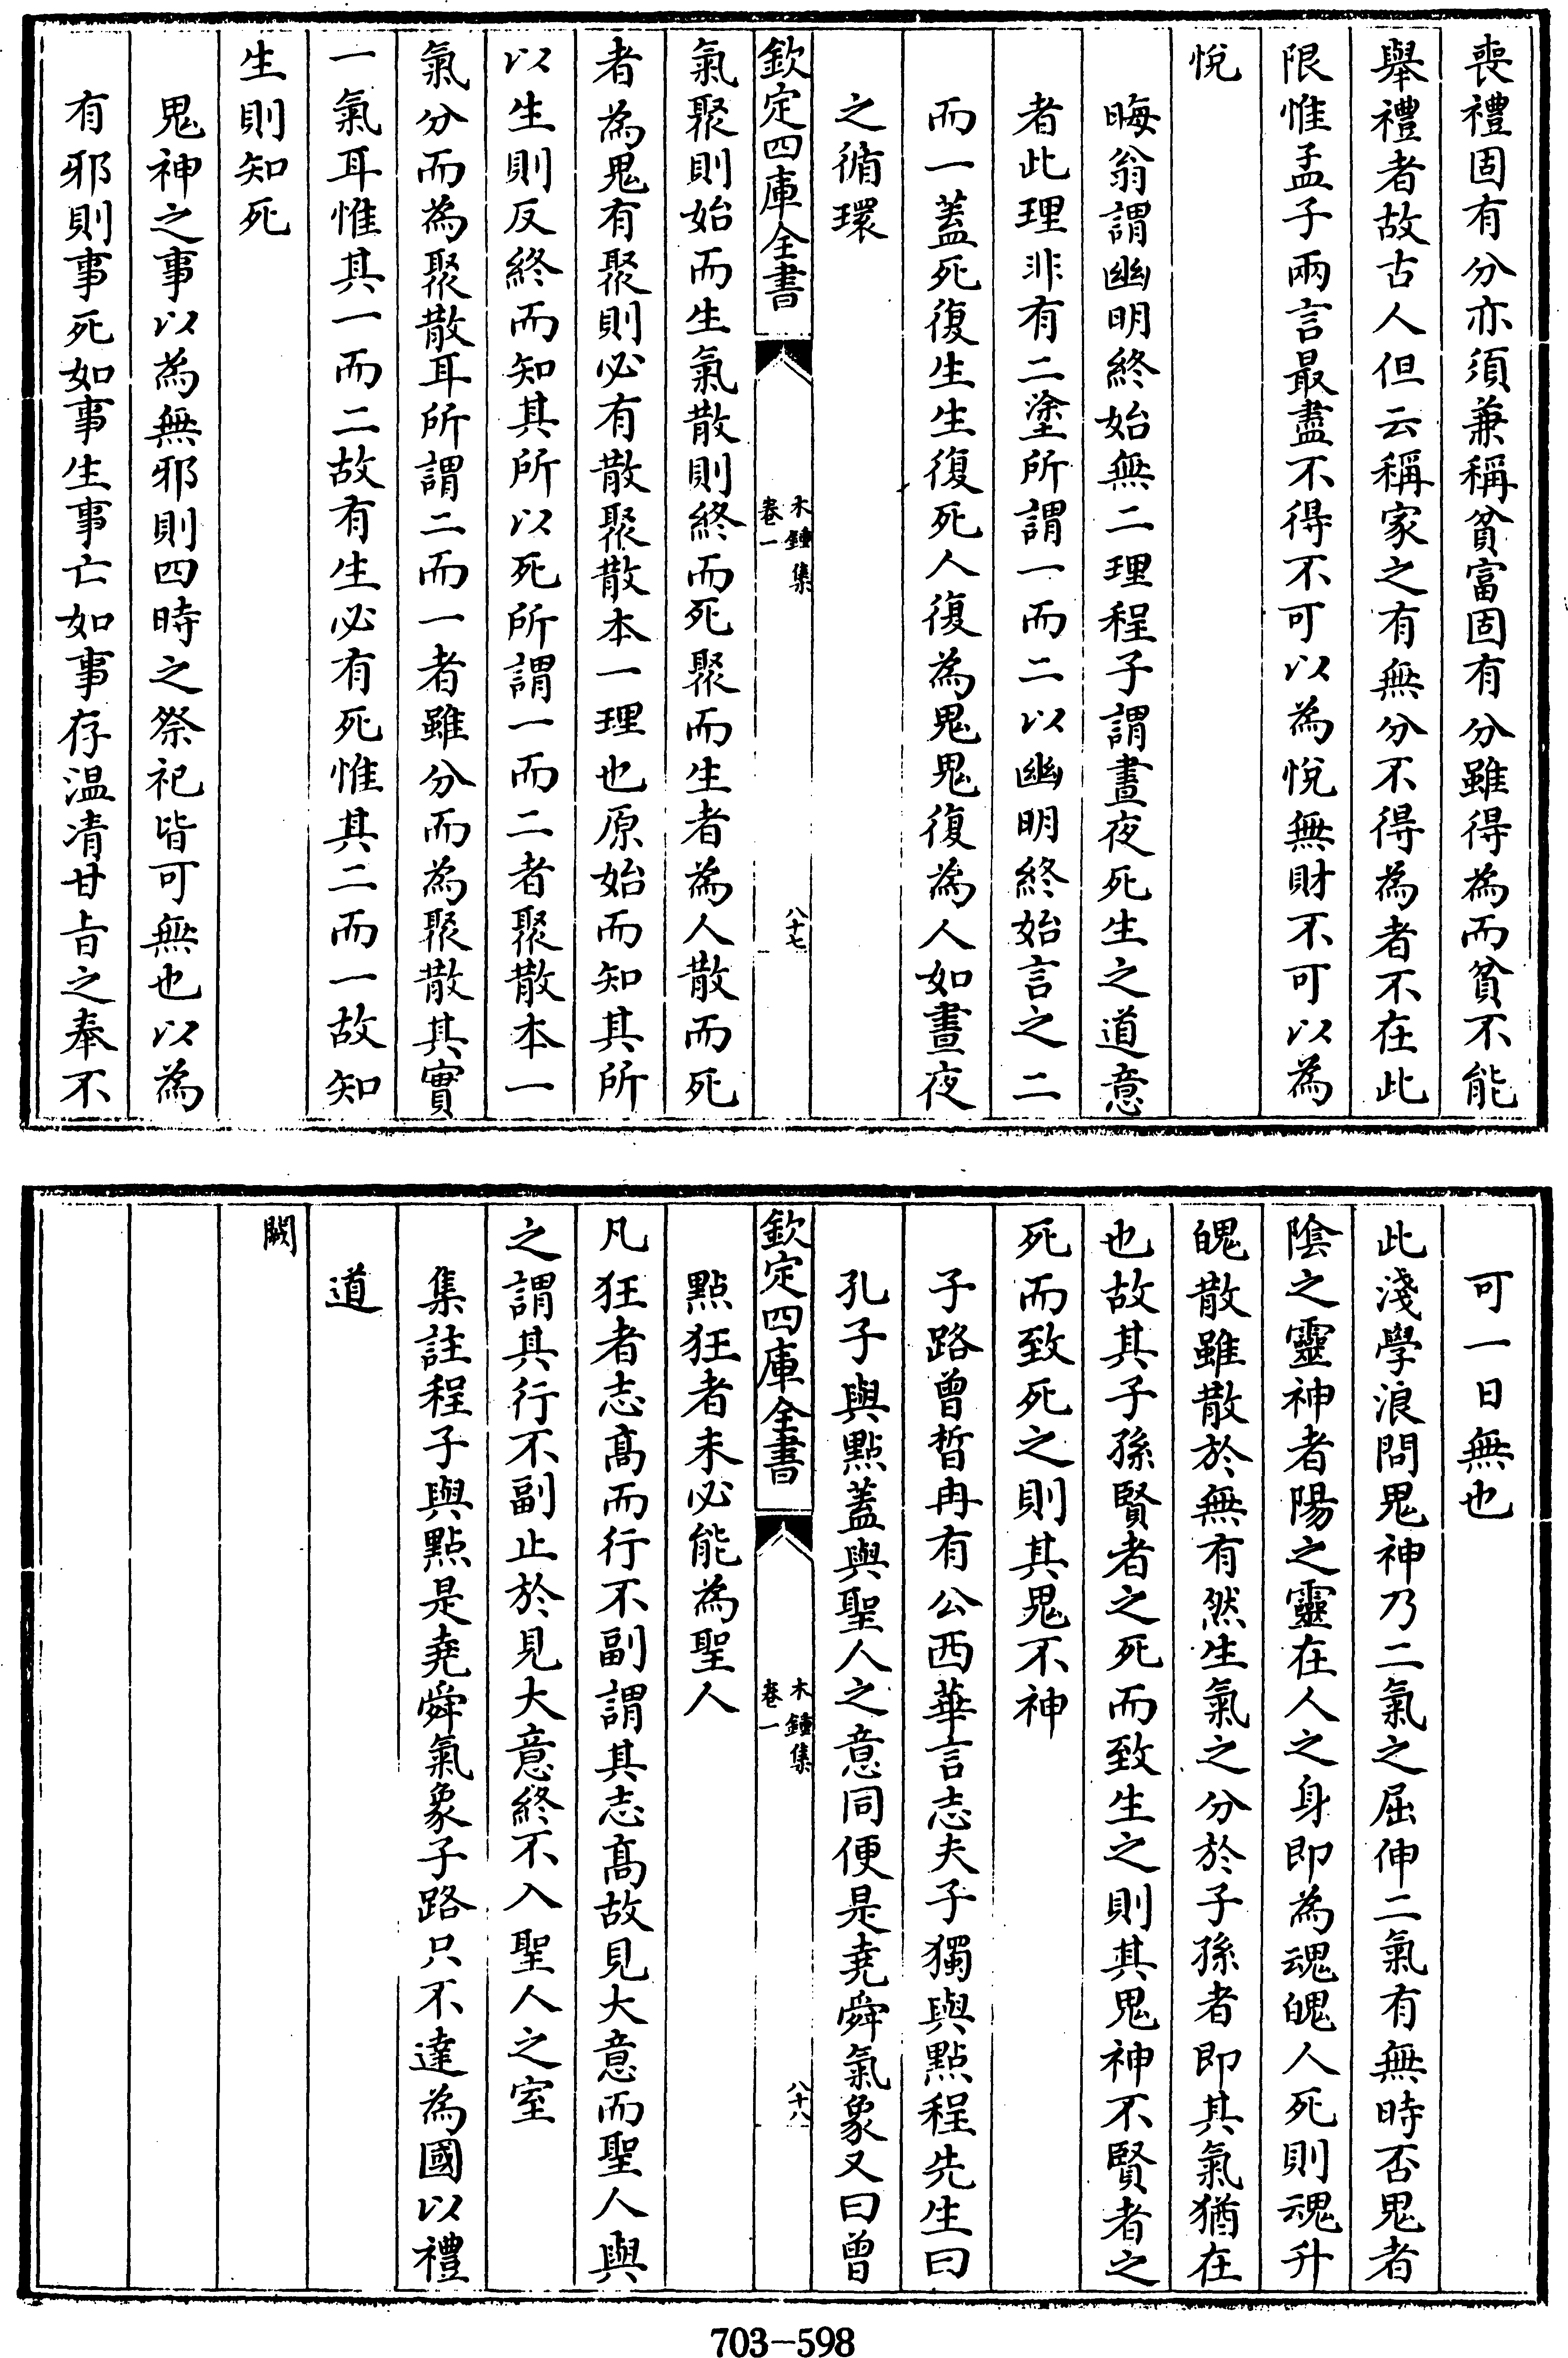 喪禮固有分亦須兼稱貧富固有分雖得為而貧不能
舉禮者故古人但云稱家之有無分不得為者不在此
限惟孟子兩言最盡不得不可以為悅無財不可以為
悅
晦翁謂幽明終始無二理程子謂晝夜死生之道意
者此理非有二塗所謂一而二以幽明終始言之二
而一蓋死復生生復死人復為鬼鬼復為人如晝夜
之循環
欽定四庫全書
木鍾集
卷一
八十七
氣聚則始而生氣散則終而死聚而生者為人散而死
者為鬼有聚則必有散聚散本一理也原始而知其所
以生則反終而知其所以死所謂一而二者聚散本一
氣分而為聚散耳所謂二而一者雖分而為聚散其實
一氣耳惟其一而二故有生必有死惟其二而一故知
生則知死
鬼神之事以為無邪則四時之祭祀皆可無也以為
有邪則事死如事生事亡如事存温凊甘旨之奉不
可一日無也
此淺學浪問鬼神乃二氣之屈伸二氣有無時否鬼者
陰之靈神者陽之靈在人之身即為魂魄人死則魂升
魄散雖散於無有然生氣之分於子孫者即其氣猶在
也故其子孫賢者之死而致生之則其鬼神不賢者之
死而致死之則其鬼不神
子路曾晳冉有公西華言志夫子獨與點程先生曰
孔子與點蓋與聖人之意同便是堯舜氣象又曰曾
欽定四庫全書
木鍾集
卷一
八十八
點狂者未必能為聖人
凡狂者志高而行不副謂其志高故見大意而聖人與
之謂其行不副止於見大意終不入聖人之室
集註程子與點是堯舜氣象子路只不達為國以禮
道
闕
703-598